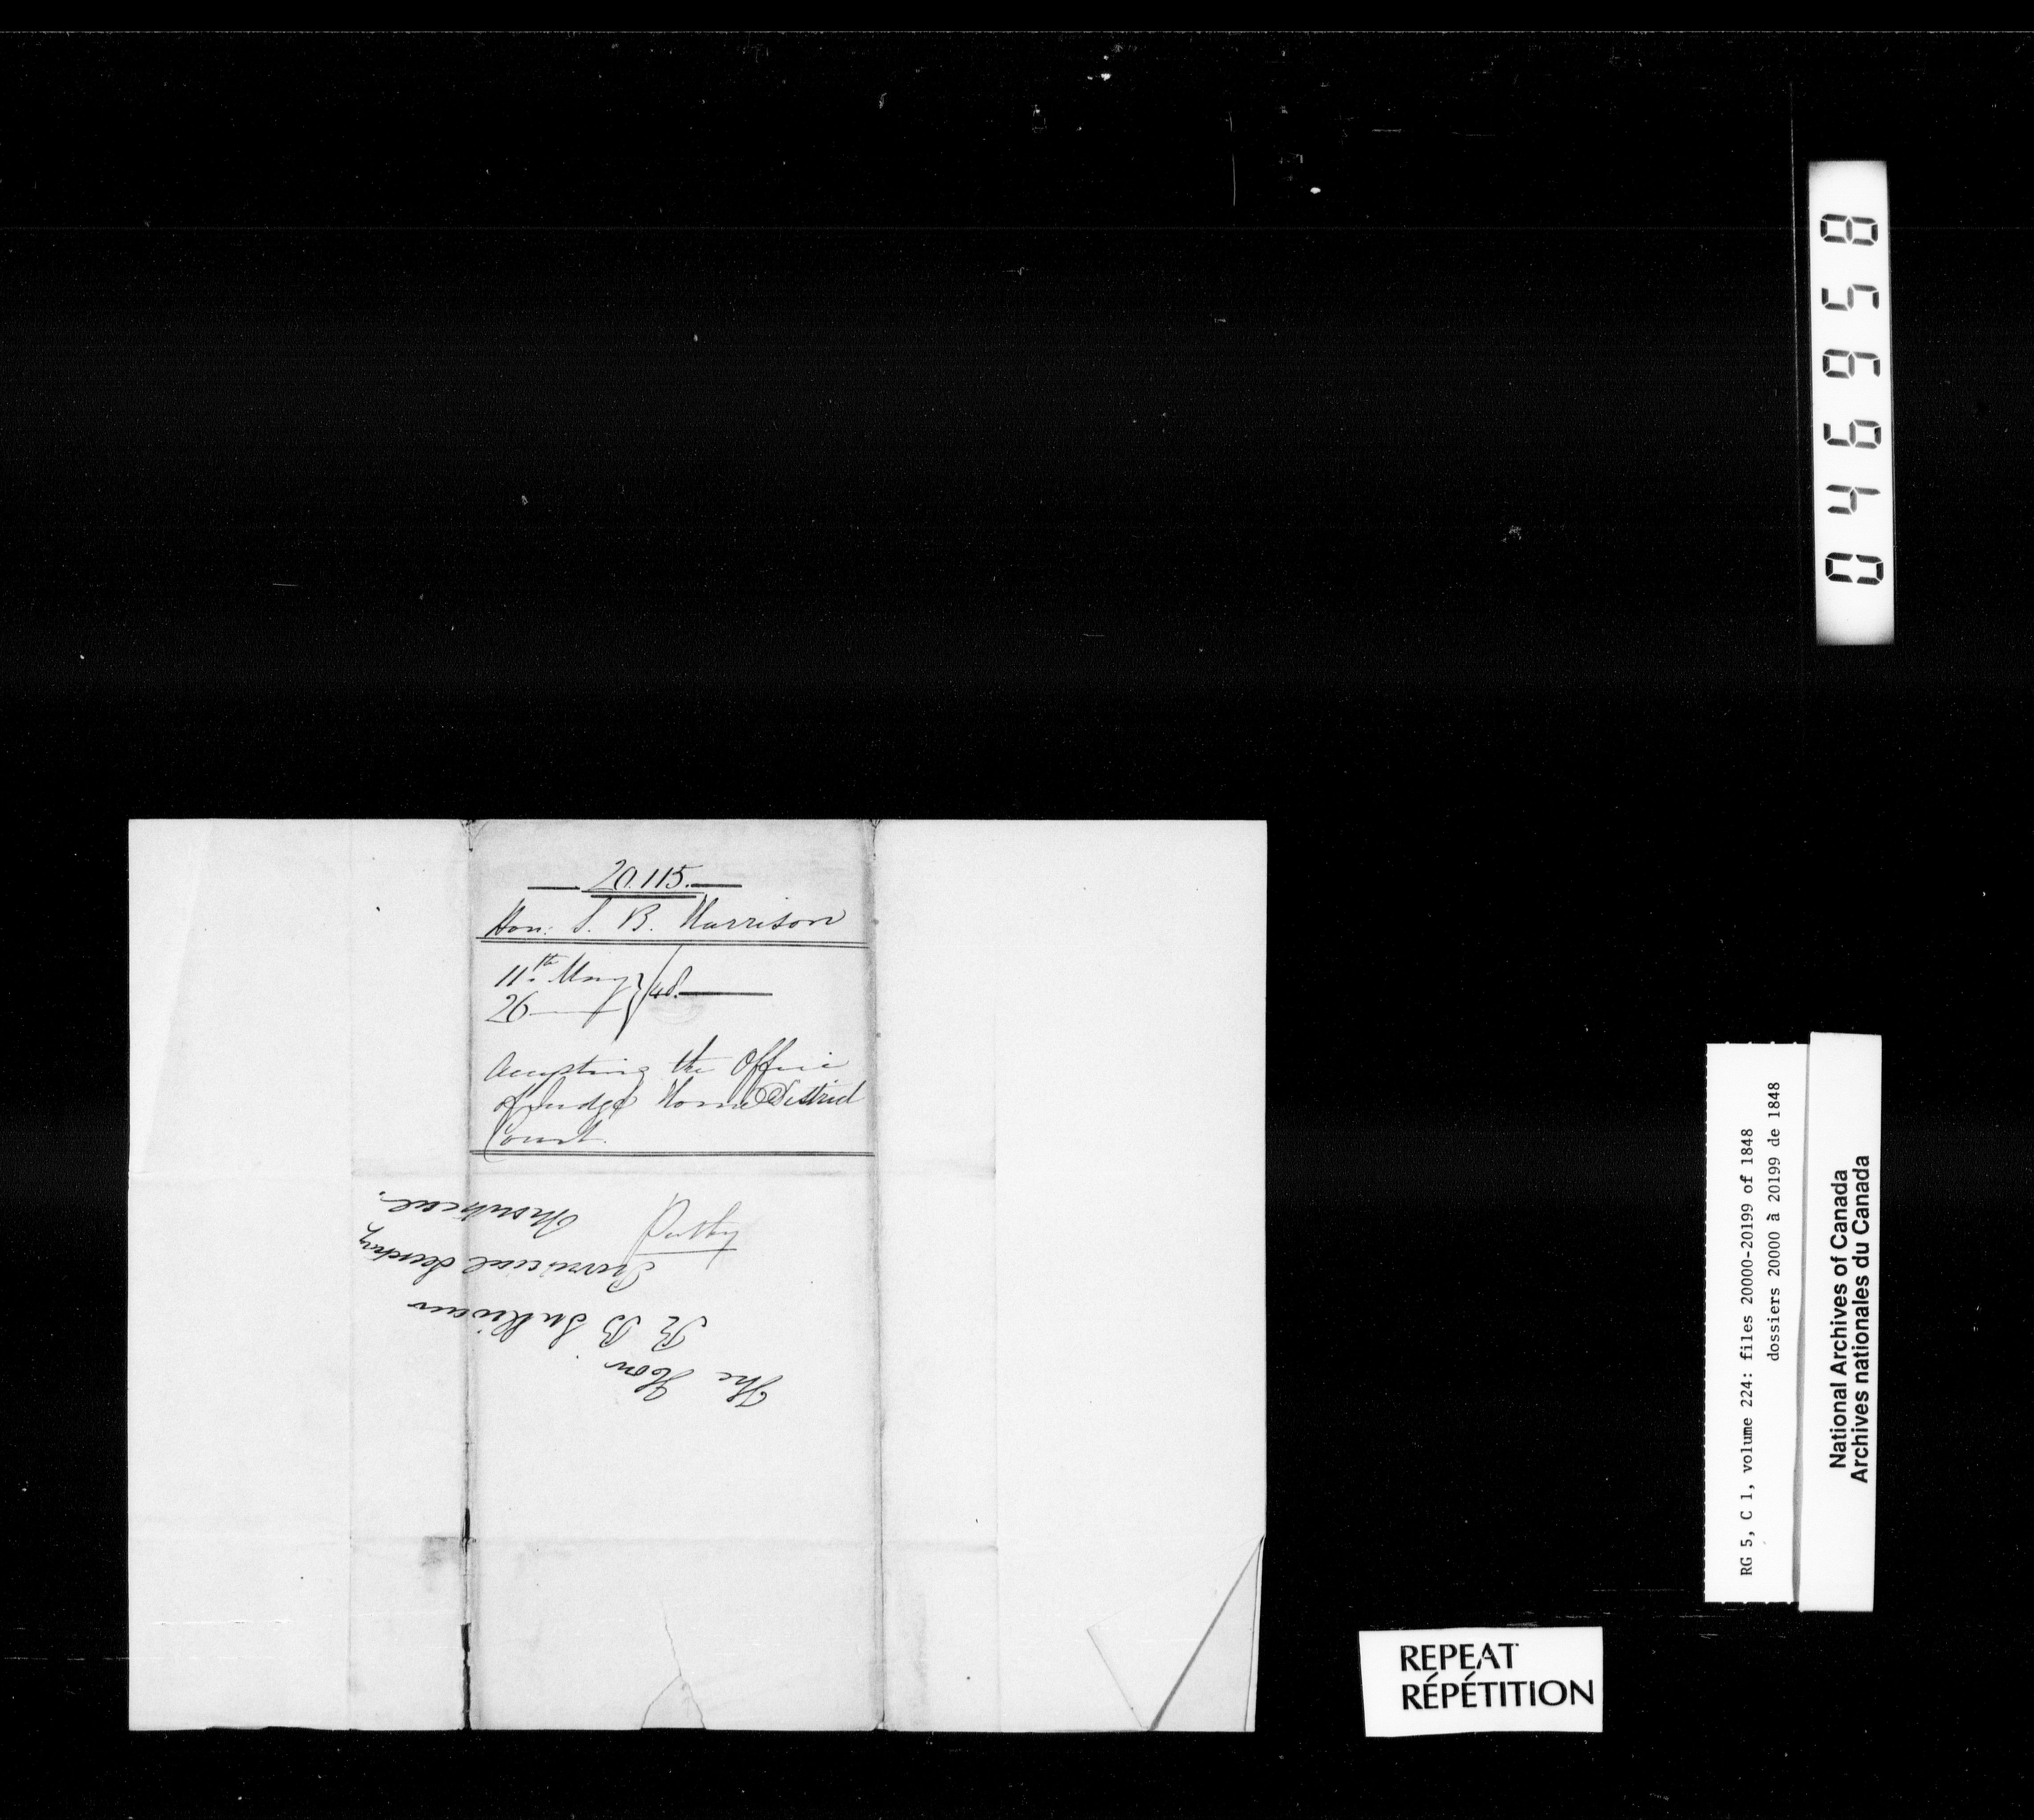 20.115.
Hon: S. B. Harrison
11th May
26 — } /48.
Accepting the Office
of Judge Home District
Court.
The Hon
R B Sullivan
Provincial Secretary
Montreal.
046958
RG 5, C 1, volume 224: files 20000-20199 of 1848
dossiers 20000 à 20199 de 1848
National Archives of Canada
Archives nationales du Canada
REPEAT
RÉPÉTITION